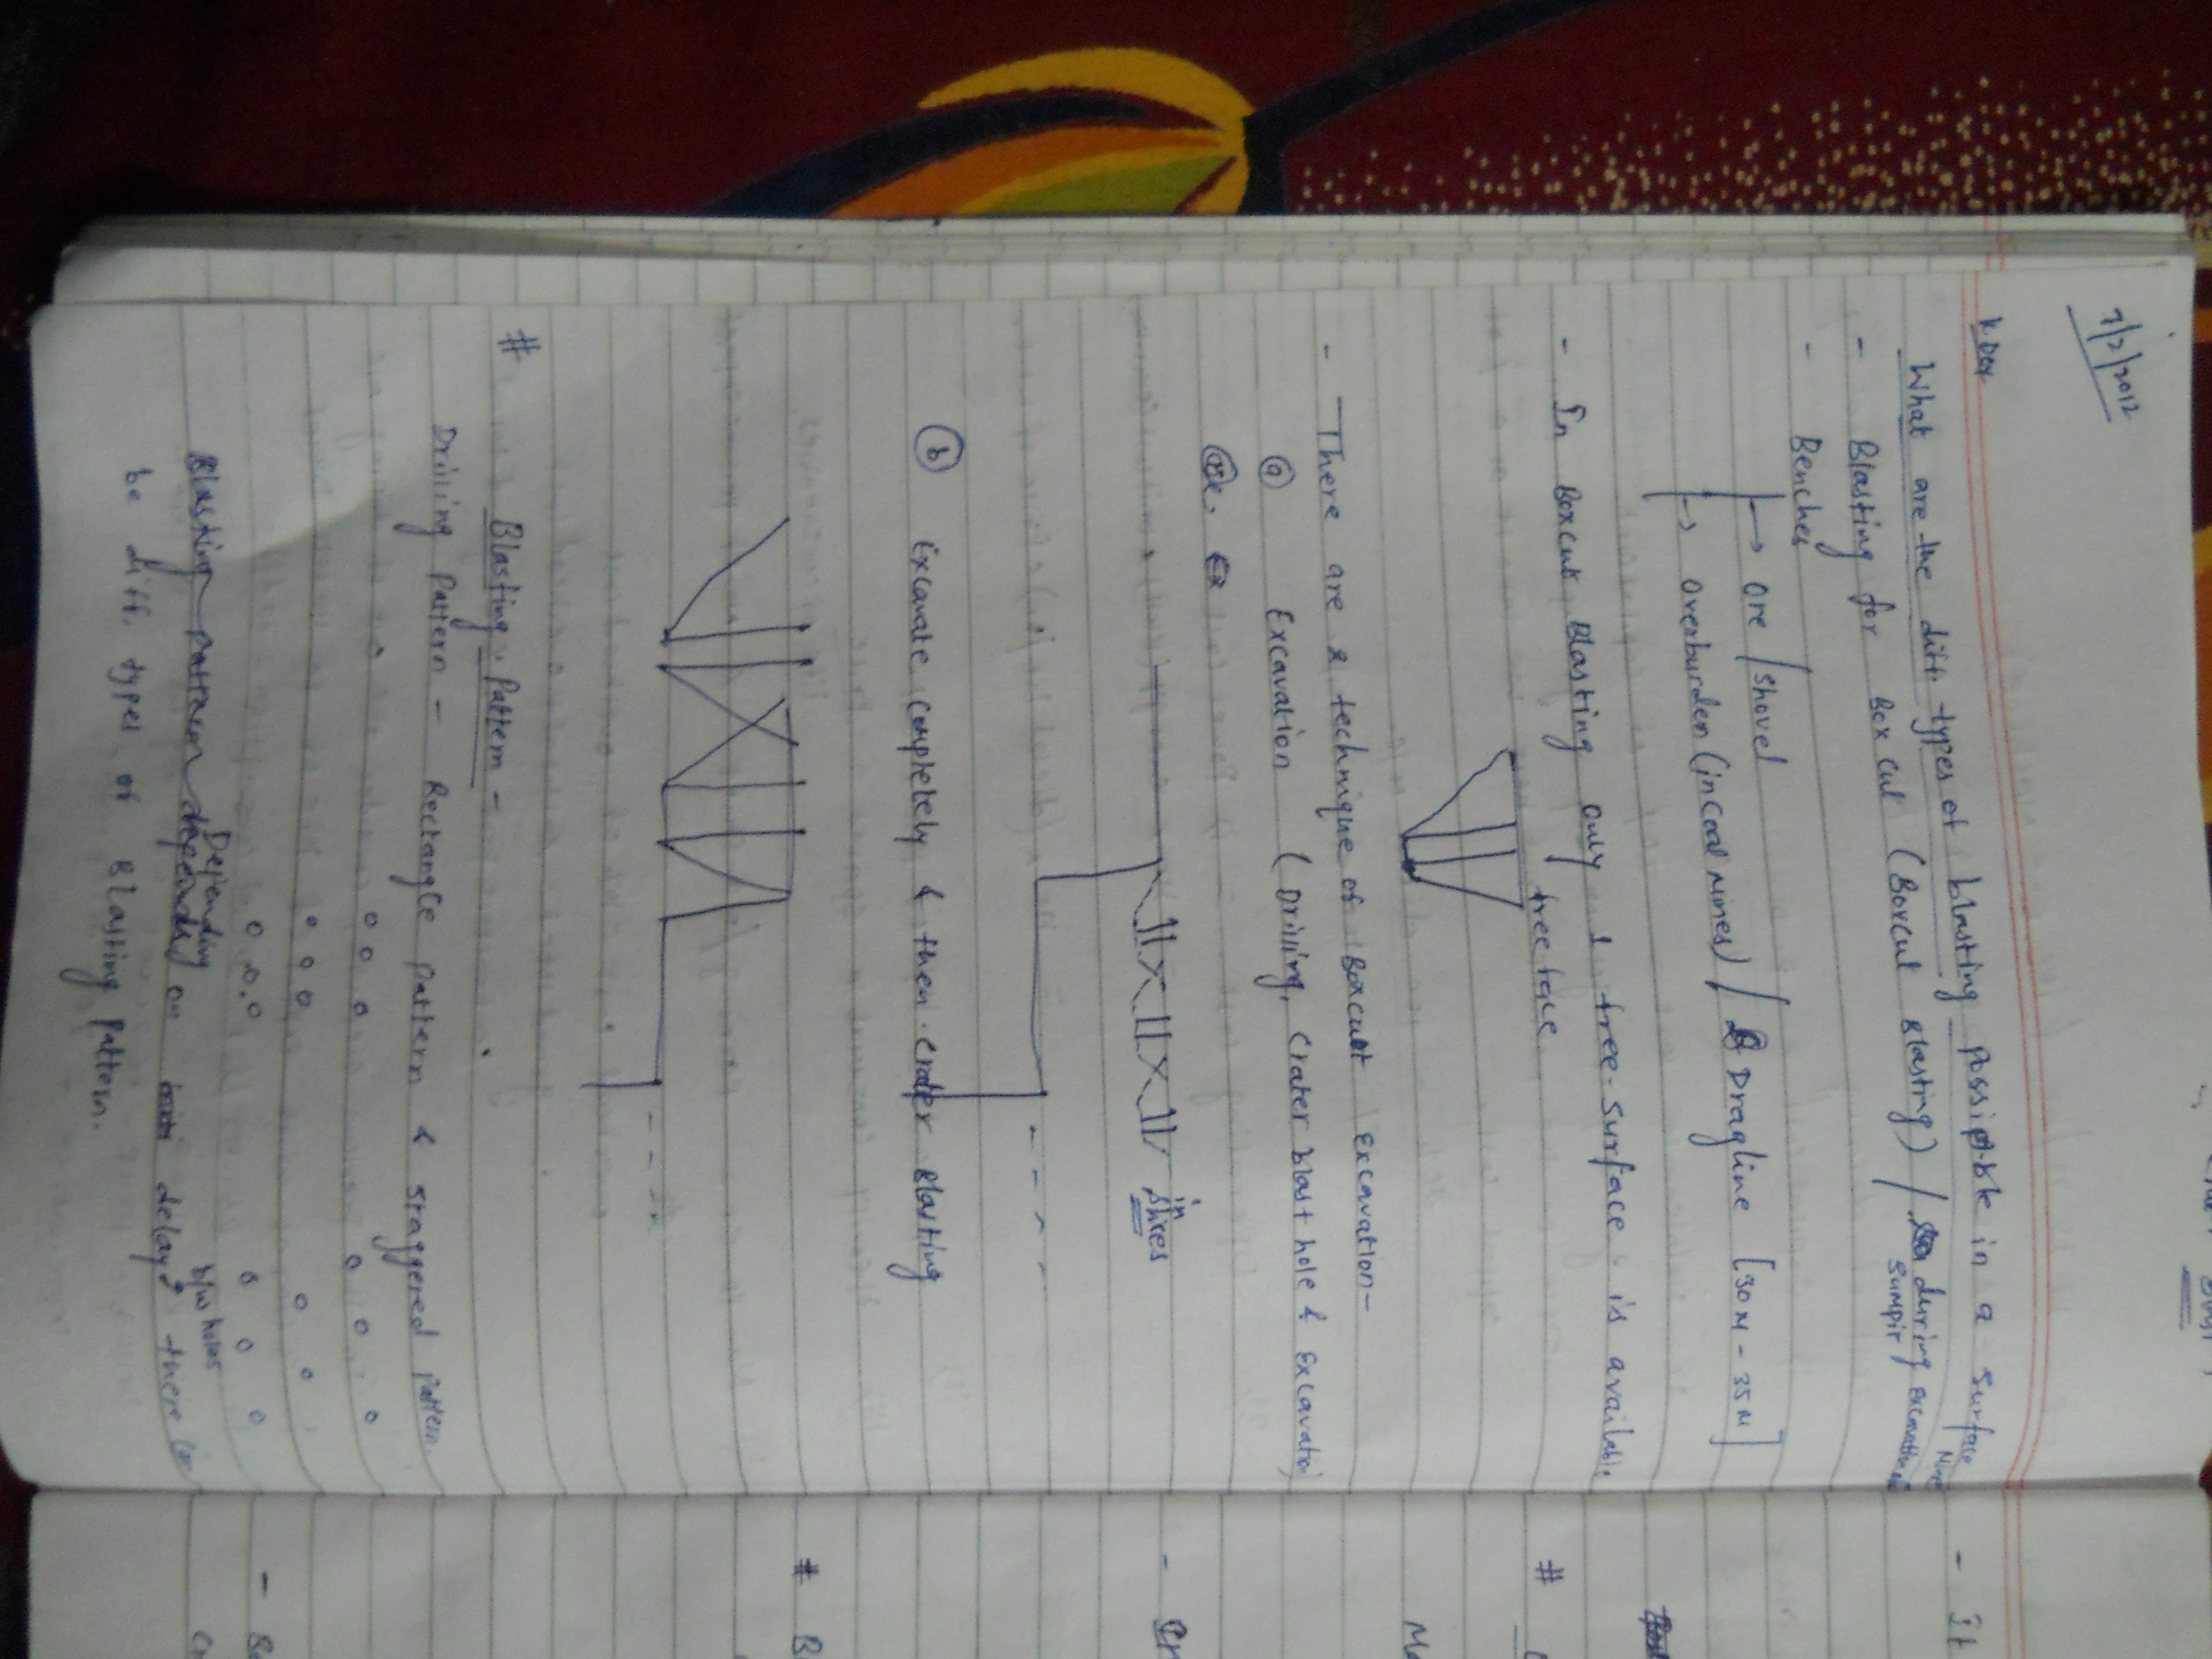 7/2/2012
What are the diff. types of blasting possible in a surface Mine
- Blasting for Box cut (Boxcut Blasting) / during excavation of sumpit
- Benches
→ Ore / shovel
→ Overburden (in coal mines) / Dragline [30M - 35M]
- In Boxcut Blasting only 1 free-surface is available.
free face
- There are 2 technique of Boxcut Excavation-
(a) Excavation (Drilling, Crater blast hole & Excavation
in slices
(b) Excavate completely & then crater Blasting
# Blasting Pattern -
Drilling Pattern - Rectangle Pattern & staggered Pattern.
Depending on delay b/w holes there can
be diff. types of Blasting Pattern.
- It
#
-
# B
-